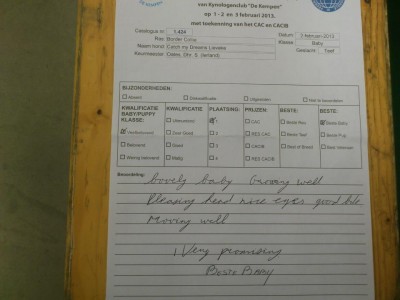 van Kynologenclub "De Kempen"
op 1 - 2 en 3 februari 2013,
met toekenning van het CAC en CACIB
Catalogus nr. 1.424
Ras: Border Collie
Naam hond: Catch my Dreams
Keurmeester:
Datum: 2-februari-2013
Klasse: Baby
Geslacht: Teef
BIJZONDERHEDEN:
Absent Diskwalificatie Uitgesloten Niet te beoordelen
KWALIFICATIE BABY/PUPPY KLASSE: KWALIFICATIE PLAATSING: PRIJZEN: BESTE: BESTE:
Veelbelovend Uitmuntend 1 CAC Beste Reu Beste Baby
Zeer Goed 2 RES CAC Beste Teef Beste Pup
Belovend Goed 3 CACIB Best of Breed Beste Veteraan
Weinig belovend Matig 4 RES CACIB
Beoordeling:
Lovely baby Growing well
Pleasing head nice eyes good bite
Moving well
1 Very promising
Beste Baby